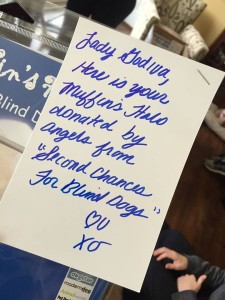 Lady Godiva,
Here is your
Muffin's Halo
donated by
angels from
"Second Chances
For Blind Dogs"
♡U
XO
in's
Blind D